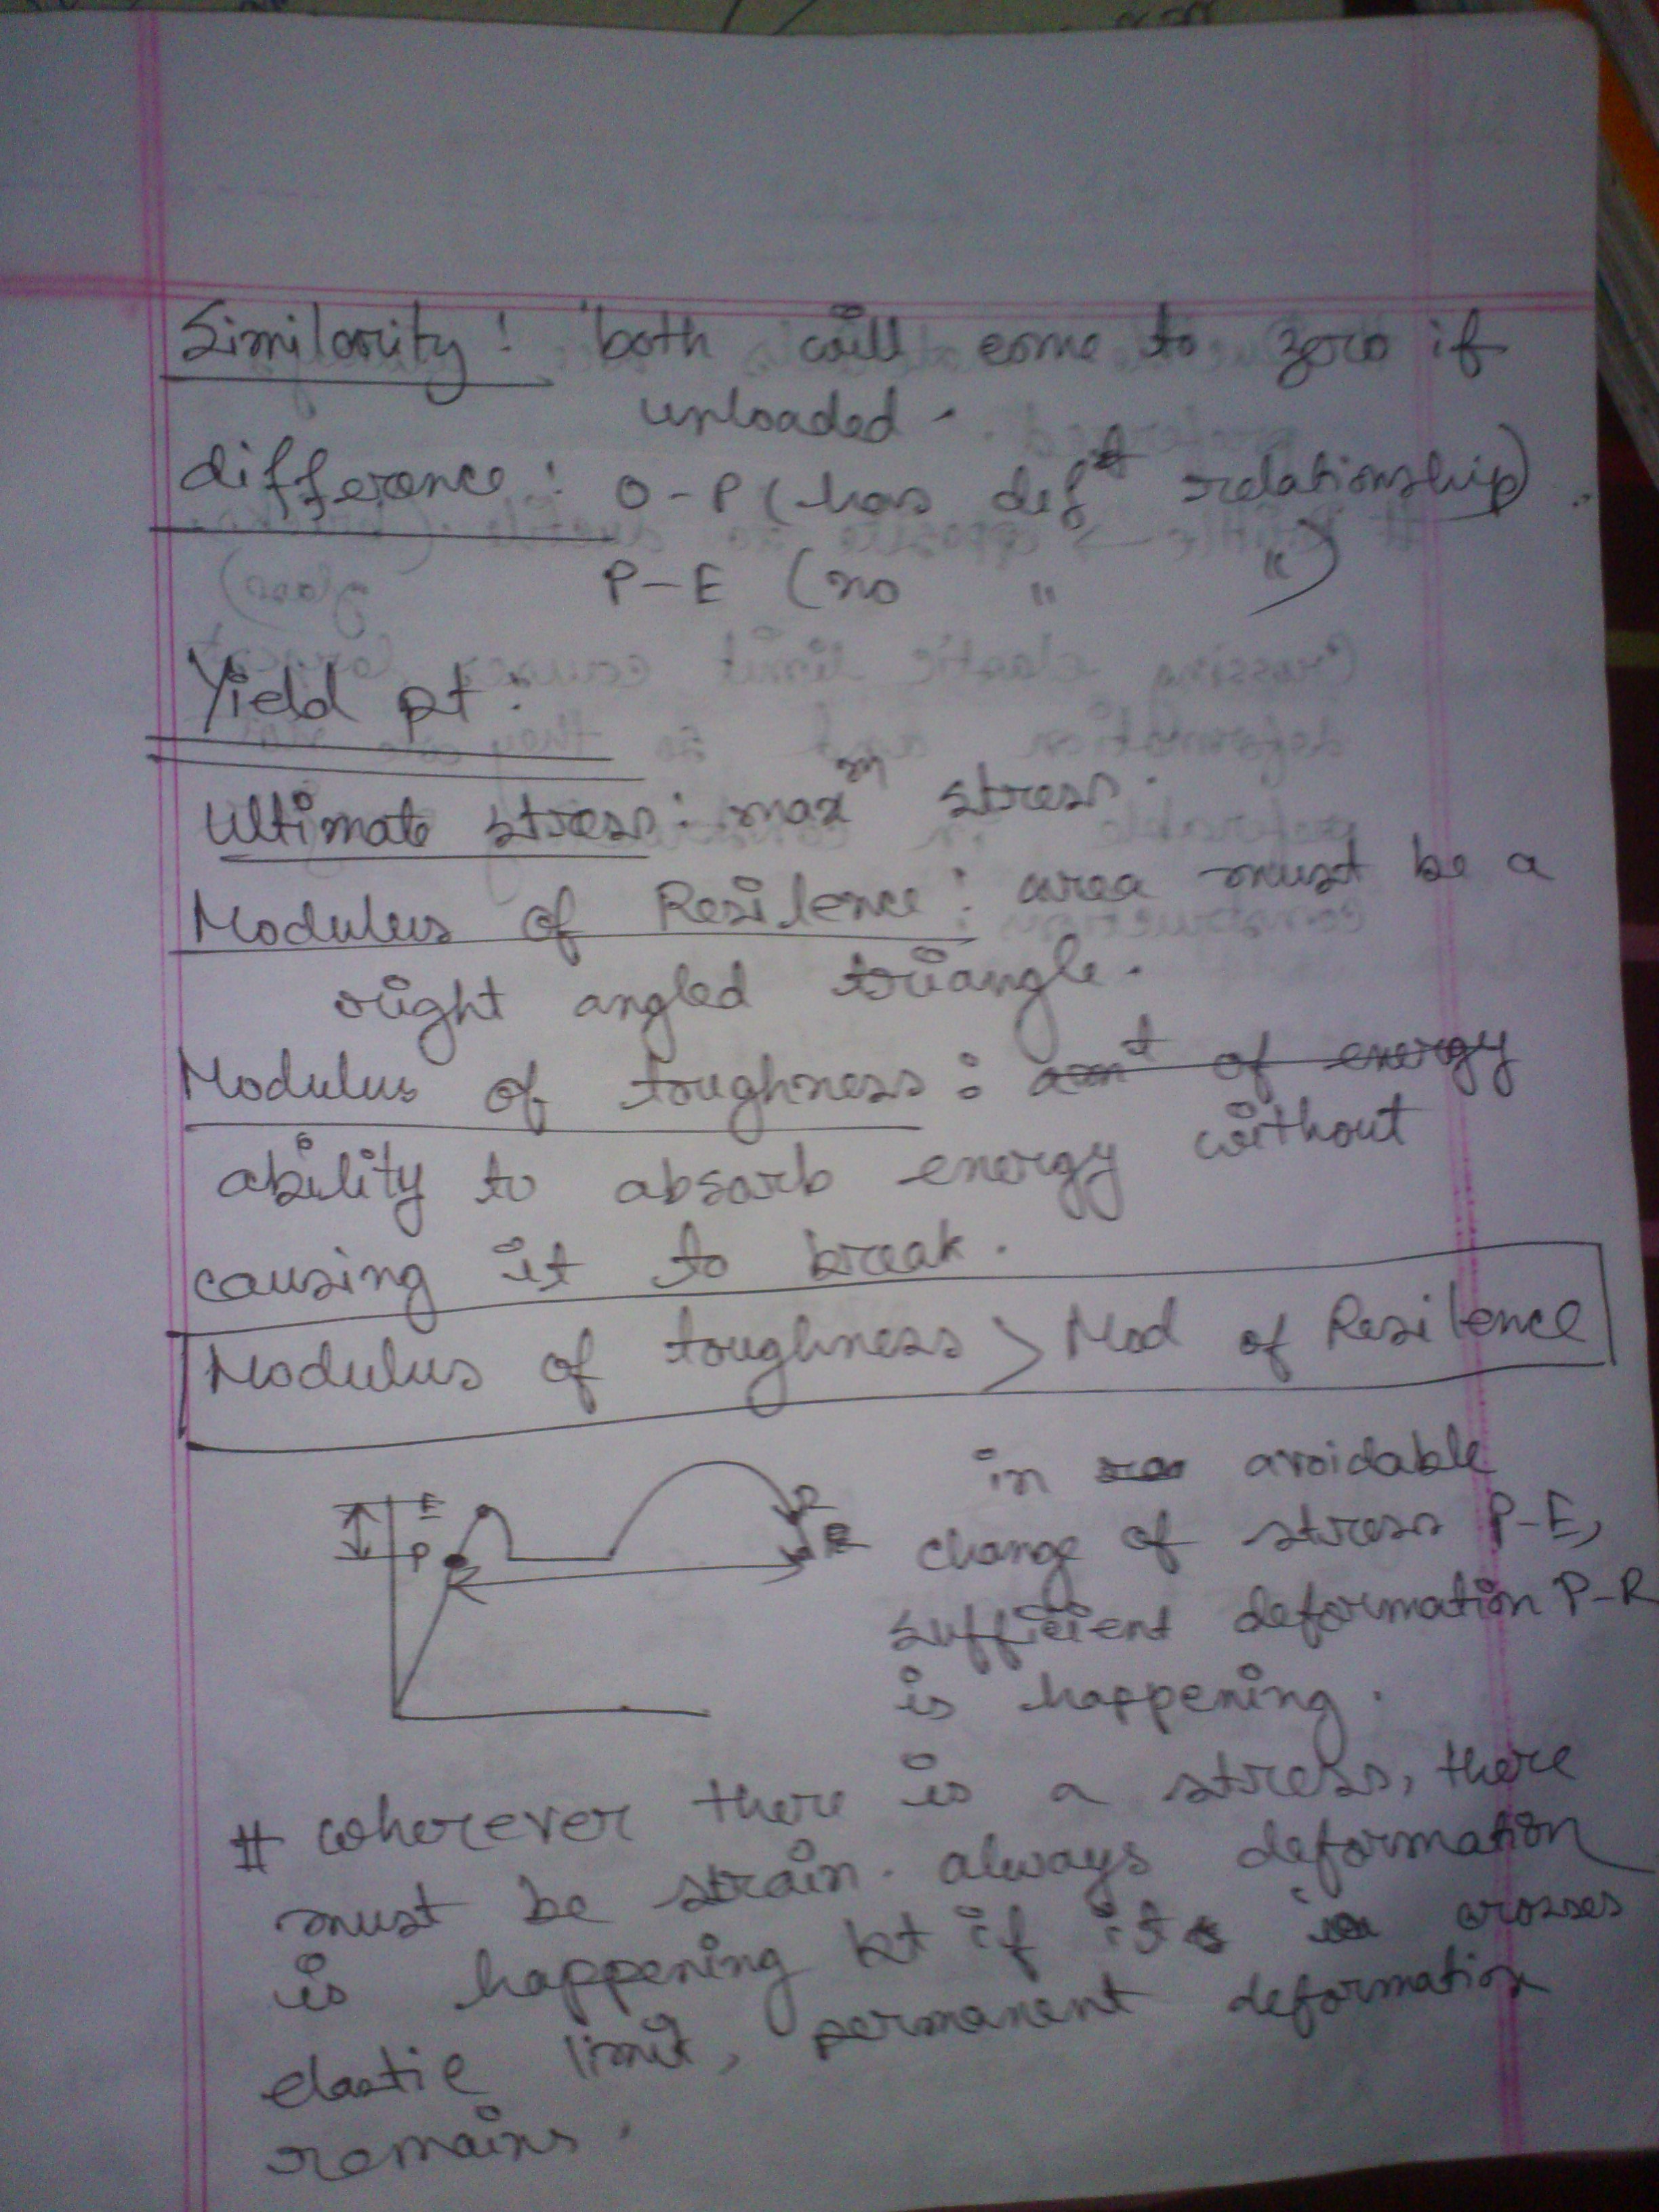 Similarity : both will come to zero if
unloaded -
difference : O-P (has def^t relationship)
P-E (no " ")
Yield pt :
Ultimate stress : max^m stress.
Modulus of Resilence : area must be a
right angled triangle.
Modulus of toughness : am^t of energy
ability to absorb energy without
causing it to break.
Modulus of toughness > Mod of Resilence
in avoidable
E
P
R
change of stress P-E,
sufficient deformation P-R
is happening.
# wherever there is a stress, there
must be strain. always deformation
is happening bt if it crosses
elastic limit, permanent deformation
remains.